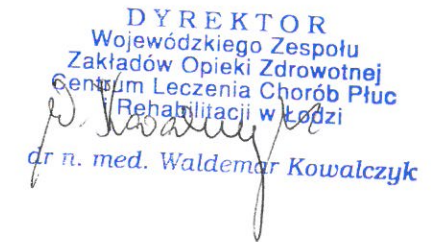 DYREKTOR
Wojewódzkiego Zespołu
Zakładów Opieki Zdrowotnej
Centrum Leczenia Chorób Płuc
i Rehabilitacji w Łodzi
dr n. med. Waldemar Kowalczyk